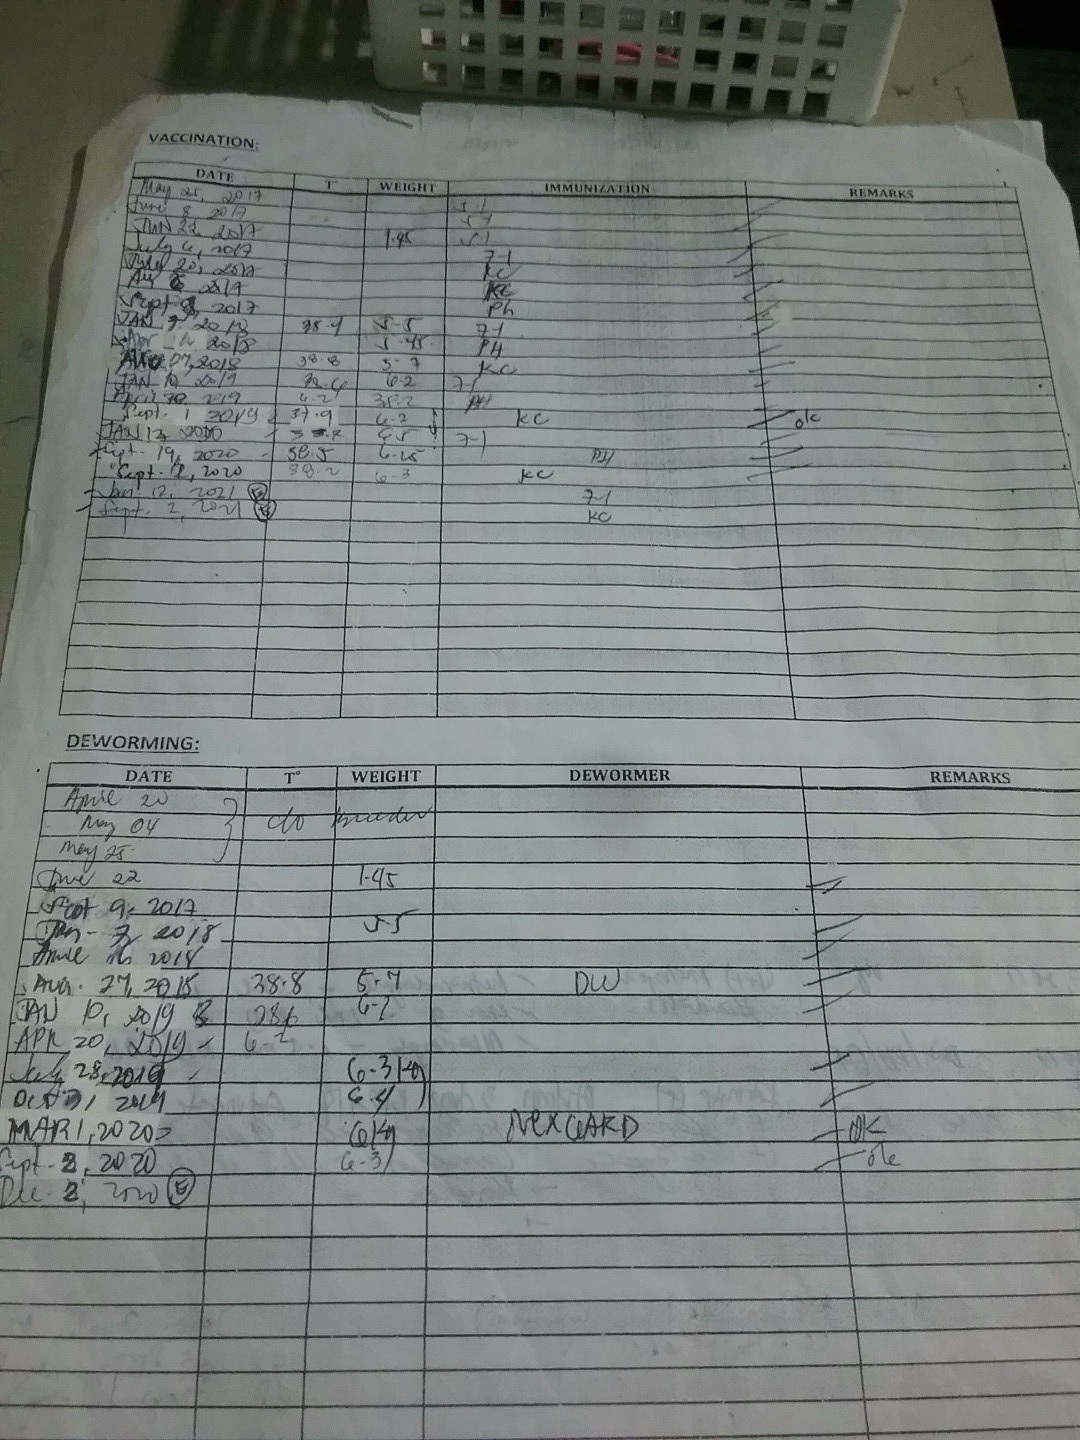 VACCINATION:
DATE T° WEIGHT IMMUNIZATION REMARKS
May 25, 2017 5-1
June 8, 2017
JUN 22, 2017 1.45 5-1
July 6, 2017 7-1
July 20, 2017 KC
2017 KC
Sept 2017 Ph
JAN 7, 2018 5-5 7-1
Apr 2018 5.45 PH
27, 2018 38.8 5-7 KC
JAN 10, 2019 6-2 7-1
April 20, 2019 6.2 38.2 PH
Sept. 1 2019 37.9 6-2 KC ok
JAN 12, 2020 7-1
Sept. 19, 2020 38.5 6.25 PH
Sept. 2020 38.2 6-3 KC
Jan. 12, 2021 E 7-1
Sept. 2, 2021 E KC
DEWORMING:
DATE T° WEIGHT DEWORMER REMARKS
April 20
May 04 c/o breeder
May 25
June 22 1.45
Sept 9, 2017
Jan - 7, 2018 5-5
April 2018
Aug. 27, 2018 38.8 5-7 DW
JAN 10, 2019
APR 20, 2019 - 6-2
July 28, 2019 6-3 kg
Oct 31 2019 6.4
MAR 1, 2020 6 kg NEXGARD OK
Sept - 2, 2020 6-3 ok
Dec. 2, 2020 E